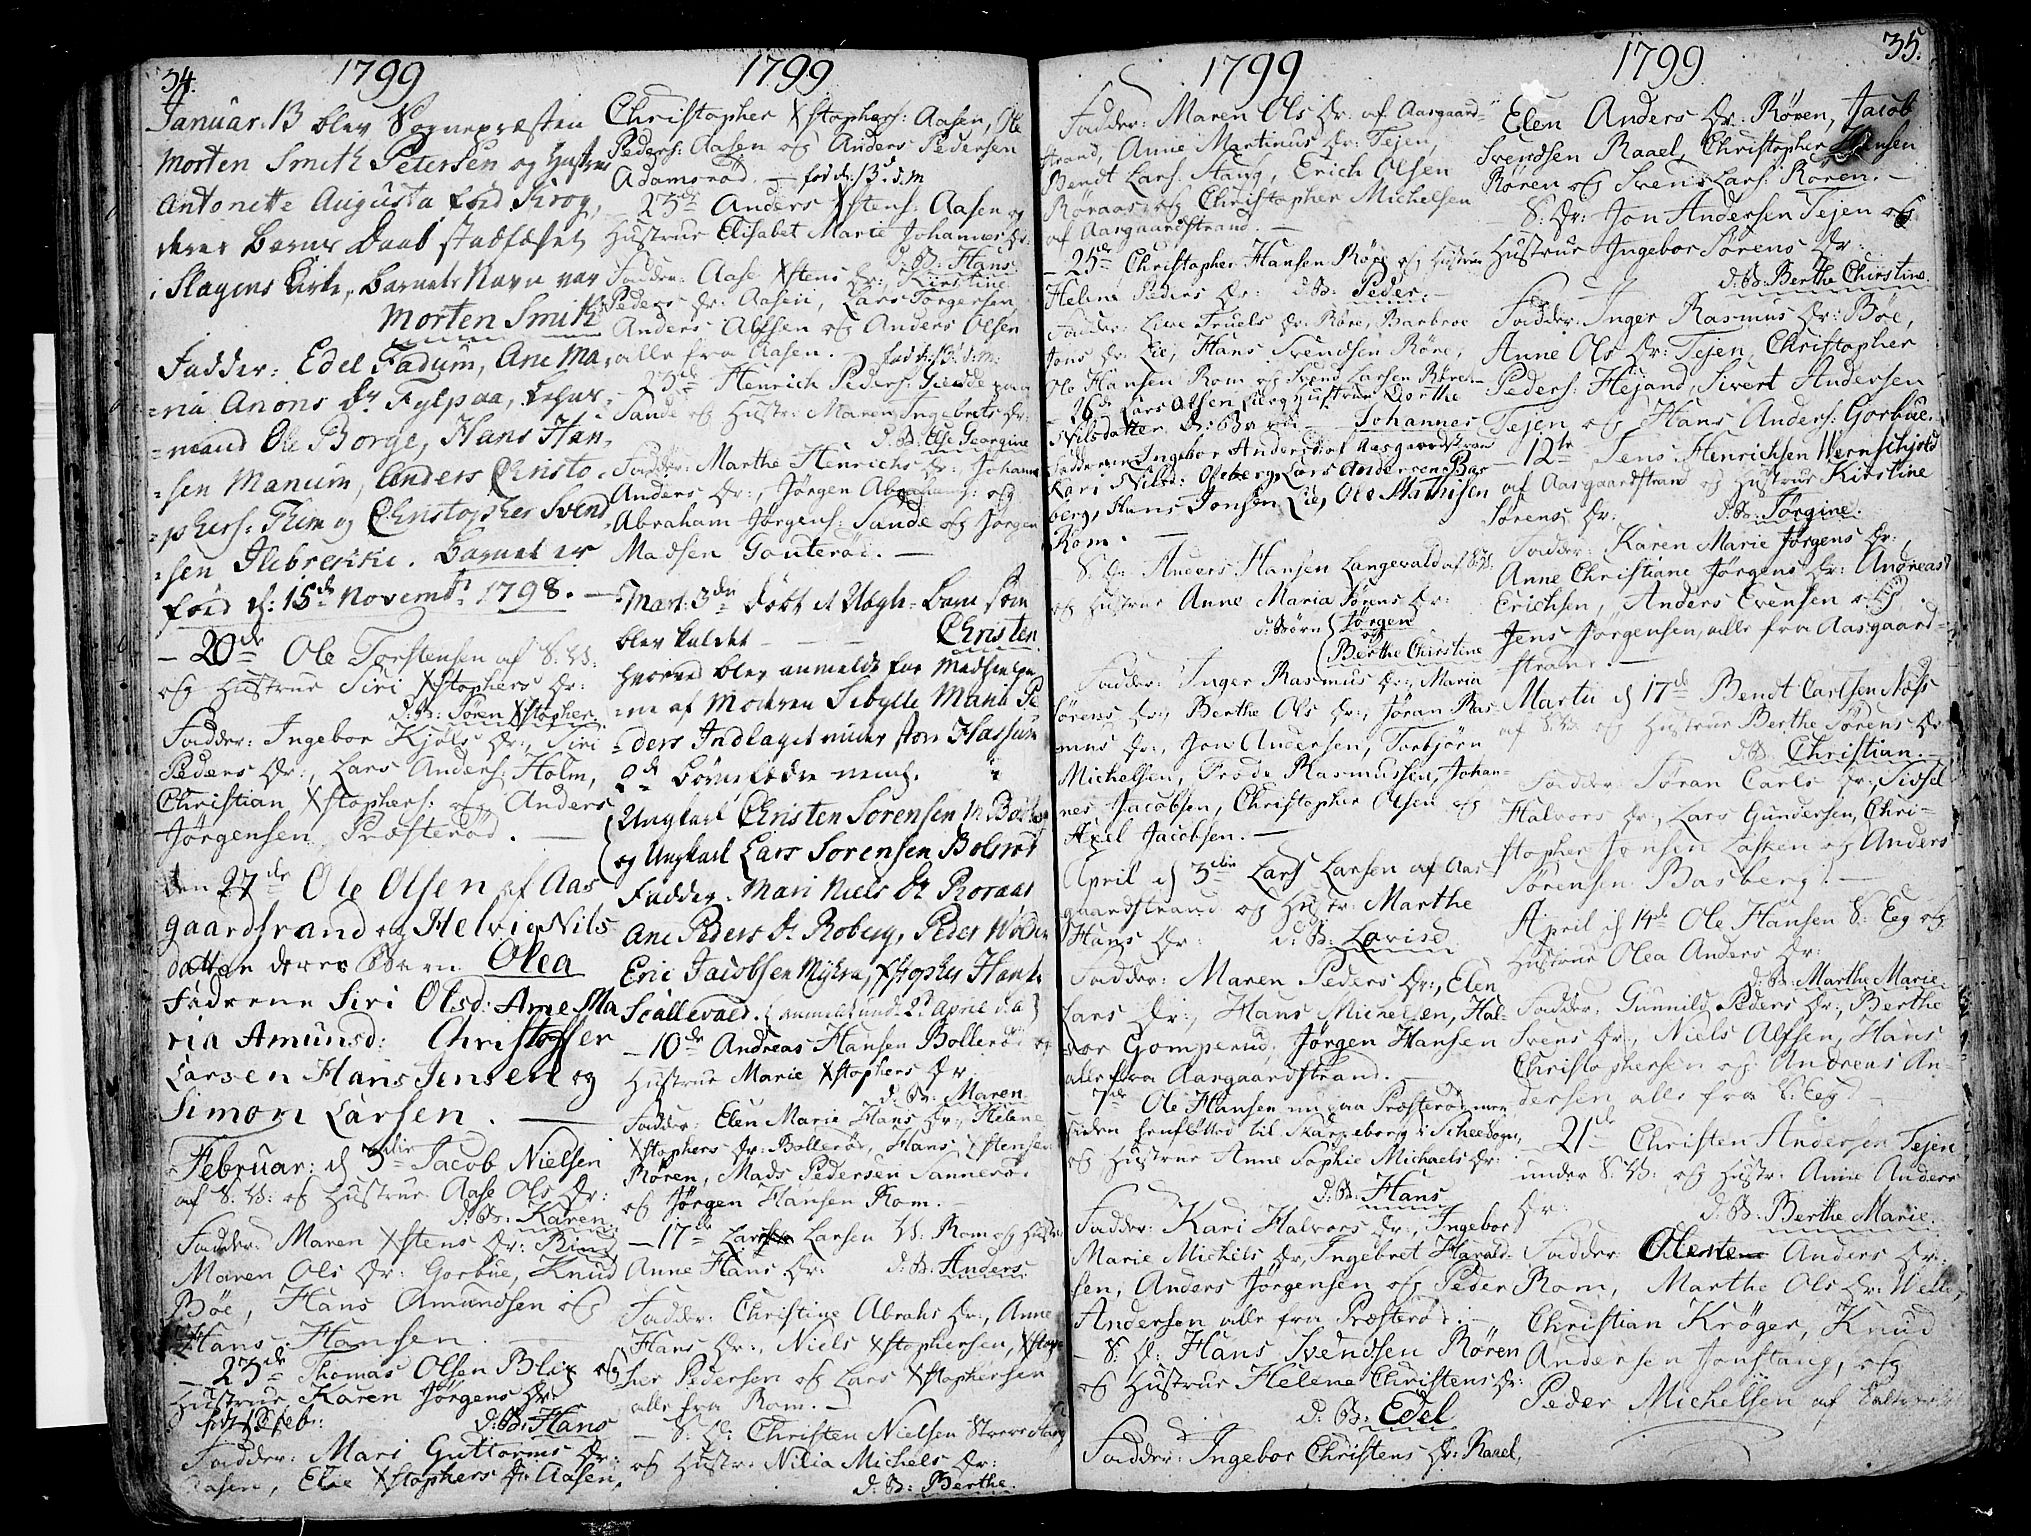 34.
1799
Januar. 13 blev Sognepræsten
Morten Smith Petersen og Hustrue
Antonette Augusta fød Krog,
deres Barns Daab stadfæstet
i Slagens Kirke, Barnets Navn var
Morten Smith
Fadder: Edel Fadum, Ane Ma-
=ria Anons Dr Fylpaa,
=mand Ole Borge, Hans Han-
=sen Manum, Anders Christo-
=phers: Them og Christopher Svend
=sen Ilebrekke. Barnet er
fød d: 15de Novembr 1798. —
— 20de Ole Torstensen af S. W:
og Hustrue Siri Xstophers Dr:
d: B: Søren Xstopher
Fadder: Ingebor Kjøls Dr:, Siri
Peders Dr:, Lars Anders: Holm,
Christian Xstophers: og Anders
Jørgensen Præsterød. —
den 27de Ole Olsen af Aas
gaardstrand og Helvig Nils
datter deres Barn Olea
Fadrene Siri Olsd: Ane Ma
ria Amunsd: Christoffer
Larsen Hans Jensen og
Simon Larsen. —
Februar: d 3die Jacob Nielsen
af S. W: og Hustrue Aase Ols Dr:
d: B: Karen.
Fadder: Maren Xstens Dr: Rind
Maren Ols Dr: Gorbue, Knud
Bøe, Hans Amundsen og
Hans Hansen. —
— 23de Thomas Olsen Blix og
Hustrue Karen Jørgens Dr:
d: B: Hans
Fadder: Mari Guttorms Dr:
Aasen, Else Xstophers Dr Aasen,
1799
Christopher Xstophers: Aasen, Ole
Peders: Aasen og Anders Pedersen
Adamsrød. — fød d: 13 d. m
— 23de Anders Xstens: Aasen og
Hustrue Elisabet Marie Johannes Dr:
d: B: Hans
Fadder: Aase Xstens Dr:, Kirstine
Peders Dr: Aasen, Lars Torgersen,
Anders Alfsen og Anders Olsen
alle fra Aasen.
— 23de Henrich Peders: paa
Sande og Hustr: Maren Ingebrets Dr:
d: B: Else Georgine
Fadder: Marthe Henrichs Dr:, Johanne
Anders Dr:, Jørgen Abrahams: og
Abraham Jørgens: Sande og Jørgen
Madsen Gouterød. —
Mart: 3die døbt et Uægte Barn som
blev kaldet — Christen
hvorved blev anmeldt for
af Modren Sibylle Maria Pe
=ders Indlaget
Ungkarl Christen Sørensen
og Ungkarl Lars Sørensen Bolsrød
Fadder. Mari Niels Dr Roraas
Ane Peders Dr Roberg, Peder
Eric Jacobsen Mykra, Xstopher Hans
Scallevald.
— 10de Andreas Hansen Bollerød og
Hustrue Marie Xstophers Dr
d: B: Maren.
Fadder: Elen Marie Hans Dr:, Helene
Xstophers Dr: Bollerød, Hans Xstensen
Røren, Mads Pedersen Sannerød
og Jørgen Hansen Rom.
— 17de Larsen W. Rom og Hustr:
Anne Hans Dr: d: B: Anders
Fadder: Christine Abrahs Dr:, Anne
Hans Dr:, Niels Xstophersen, Xstop
her Pedersen og Lars Xstophersen
alle fra Rom. —
— S: D: Christen Nielsen
og Hustr: Nilia Michels Dr:
d: B: Berthe.
1799
Fadder: Maren Ols Dr: af Aasgaard-
strand, Anne Martinus Dr: Tejen,
Bendt Lars: Stang, Erich Olsen
Røraas og Christopher Michelsen
af Aasgaardstrand. —
— 25de Christopher Hansen Røre og Hustrue
Helene Peders Dr: d: B: Peder.
Fadder: Live Truels Dr: Røre, Barbroe
Jons Dr: Lie, Hans Svendsen Røre,
Ole Hansen Rom og Svend Larsen Røre
— 26de Lars Olsen Lie og Hustrue Dorthe
Nilsdatter Johannes
Fadderne Ingebor Andersd: af Aasgaardstrand
Kari Nilsd: Oseberg, Lars Andersen Bas
berg, Hans Jonsen Lie, Ole Mathisen
Rom.
S: D: Anders Hansen Langevald af S: W:
og Hustrue Anne Maria Sørens Dr:
d: Børn Jørgen
og
Berthe Christine
Fadder: Inger Rasmus Dr:, Maria
Sørens Dr:, Berthe Ols Dr:, Jøran Ras
mus Dr:, Jon Andersen, Torbjørn
Michelsen, Frode Rasmussen, Johan-
nes Jacobsen, Christopher Olsen og
Axel Jacobsen. —
April d 3die Lars Larsen af Aas-
gaardstrand og Hustr: Marthe
Hans Dr: d: B: Lovise
Fadder: Maren Peders Dr:, Elen
Lars Dr:, Hans Michelsen, Hal-
vor Gomperud, Jørgen Hansen
alle fra Aasgaardstrand. —
— 7de Ole Hansen nu paa Præsterød men
siden henflottet til Skargeborg i
og Hustrue Anne Sophie Michaels Dr:
d: B: Hans
Fadder: Kari Halvors Dr:, Ingebor
Marie Michils Dr, Ingebret Harald-
sen, Anders Jørgensen og Peder
Andersen alle fra Præsterød. —
— S: D: Hans Svendsen Røren
og Hustrue Helene Christens Dr:
d: B: Edel
Fadder: Ingebor Christens Dr: Raael,
1799
35.
Elen Anders Dr: Røren, Jacob
Svendsen Raael, Christopher Jensen
Røren og Svens Lars: Røren. —
— S: D: Jon Andersen Tejen og
Hustrue Ingebor Sørens Dr:
d: B: Berthe Christine.
Fadder: Inger Rasmus Dr: Bøe,
Anne Ols Dr: Tejen, Christopher
Peders: Hejand, Sivert Andersen
Tejen og Hans Anders: Gorbue.
— 12te Jens Henrichsen Wernskjold
af Aasgaardstrand og Hustrue Kirstine
Sørens Dr: d: B: Jørgine.
Fadder: Karen Marie Jørgens Dr:,
Anne Christiane Jørgens Dr: Andreas
Erichsen, Anders Evensen og
Jens Jørgensen, alle fra Aasgaard-
strand. —
Martii d 17de Bendt Carlsen Næss
af S. W: og Hustrue Berthe Sørens Dr:
d: B: Christian.
Fadder: Jøran Carls Dr:, Sissel
Halvors Dr:, Lars Gundersen, Chri-
stopher Jonsen Lasken og Anders
Sørensen Basberg. —
April d 14de Ole Hansen S: Eeg og
Hustrue Olea Anders Dr:
d: B: Marthe Marie
Fadder: Gunnild Peders Dr:, Berthe
Svens Dr:, Niels Alfsen, Hans
Christophersen og Andreas An-
dersen alle fra S: Eeg. —
— 21de Christen Andersen Tejen
under S. W: og Hustr: Anne Anders
Dr: d: B: Berthe Marie.
Fadder: Anders Dr:
Rom, Marthe Ols Dr: Welle,
Christian Krøger, Knud
Andersen Jonstang, og
Peder Michelsen af